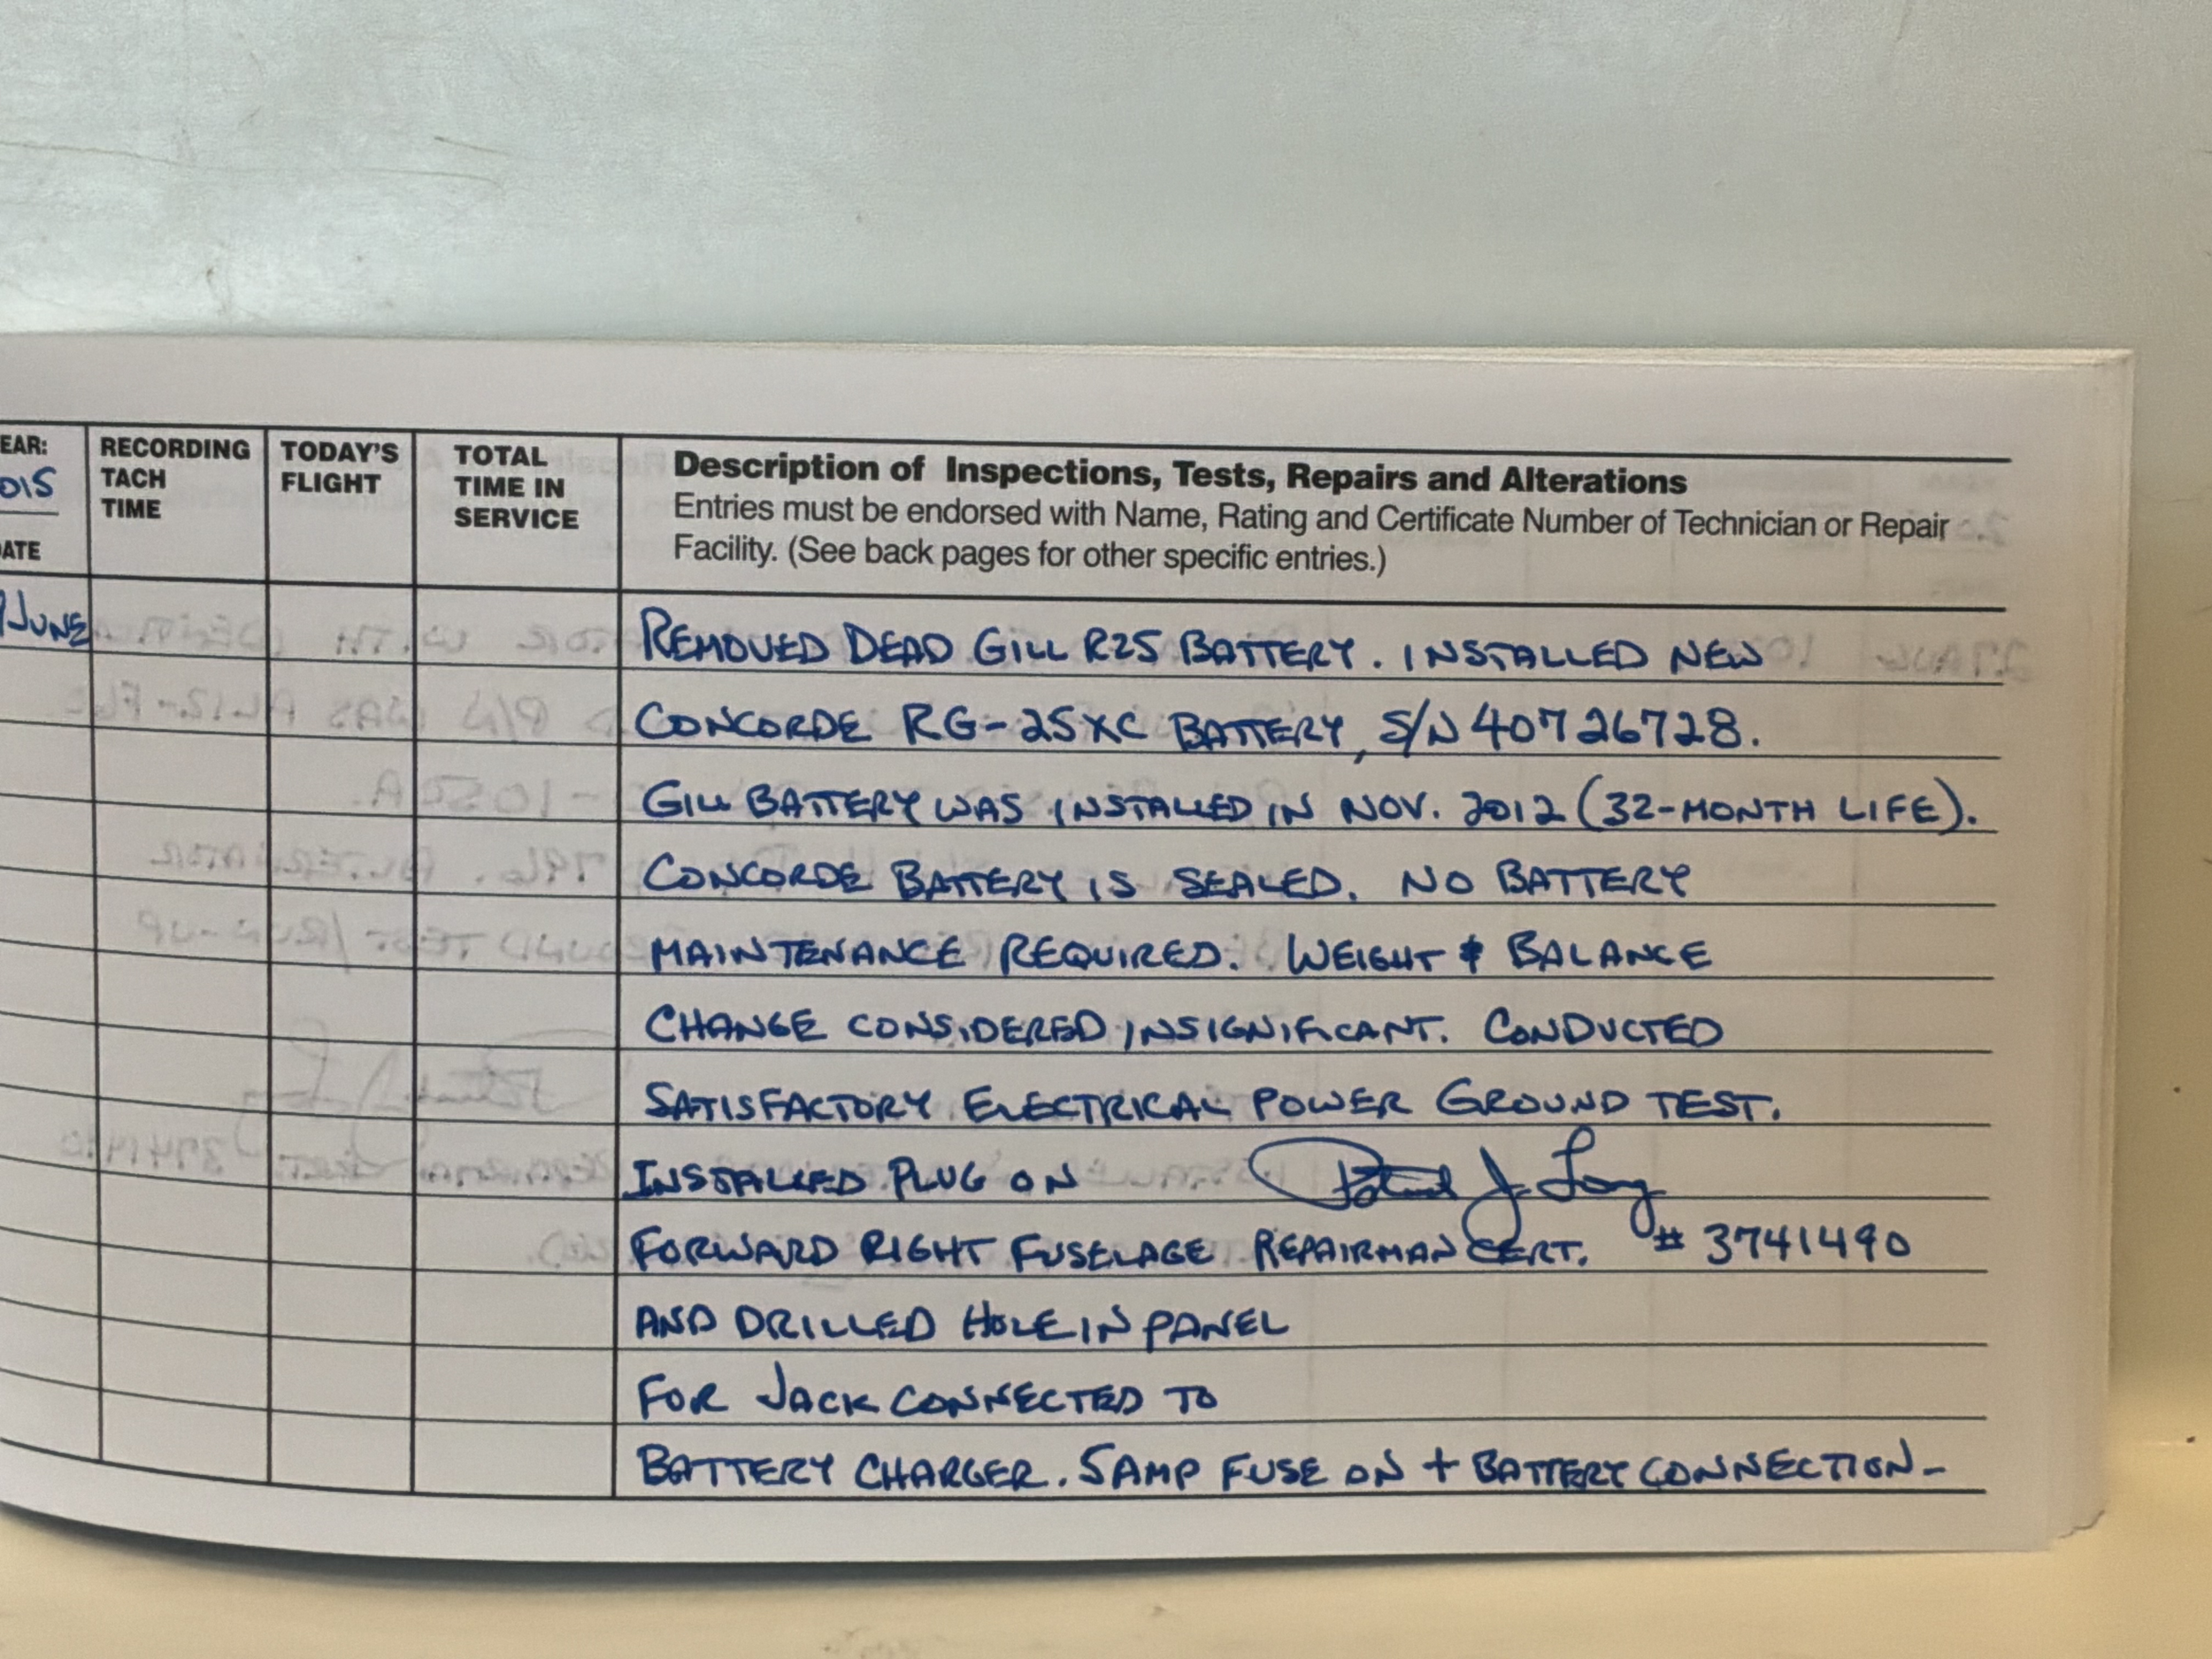 EAR:
015
ATE
RECORDING
TACH
TIME
TODAY'S
FLIGHT
TOTAL
TIME IN
SERVICE
Description of Inspections, Tests, Repairs and Alterations
Entries must be endorsed with Name, Rating and Certificate Number of Technician or Repair
Facility. (See back pages for other specific entries.)
JUNE
REMOVED DEAD GILL R25 BATTERY. INSTALLED NEW
CONCORDE RG-25XC BATTERY, S/N 40726728.
GILL BATTERY WAS INSTALLED IN NOV. 2012 (32-MONTH LIFE).
CONCORDE BATTERY IS SEALED. NO BATTERY
MAINTENANCE REQUIRED. WEIGHT & BALANCE
CHANGE CONSIDERED INSIGNIFICANT. CONDUCTED
SATISFACTORY ELECTRICAL POWER GROUND TEST.
INSTALLED PLUG ON
FORWARD RIGHT FUSELAGE REPAIRMAN CERT. # 3741490
AND DRILLED HOLE IN PANEL
FOR JACK CONNECTED TO
BATTERY CHARGER. 5AMP FUSE ON + BATTERY CONNECTION-